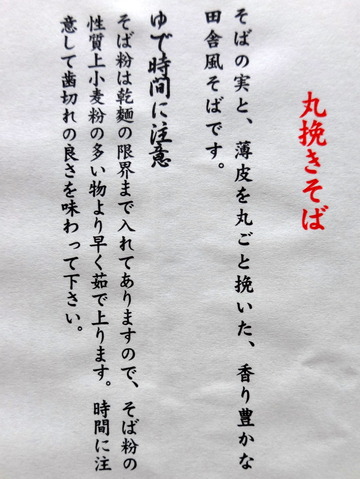 丸挽きそば
そばの実と、薄皮を丸ごと挽いた、香り豊かな
田舎風そばです。
ゆで時間に注意
そば粉は乾麺の限界まで入れてありますので、そば粉の
性質上小麦粉の多い物より早く茹で上ります。時間に注
意して歯切れの良さを味わって下さい。